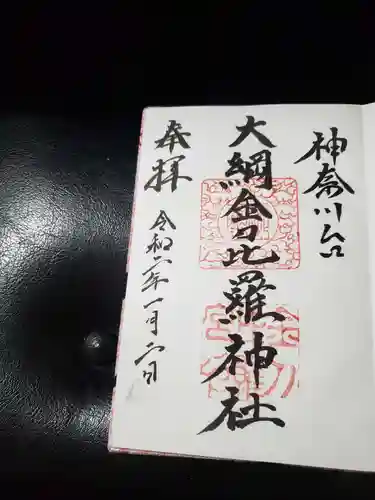 神奈川台
大綱金刀比羅神社
奉拝
令和六年一月六日